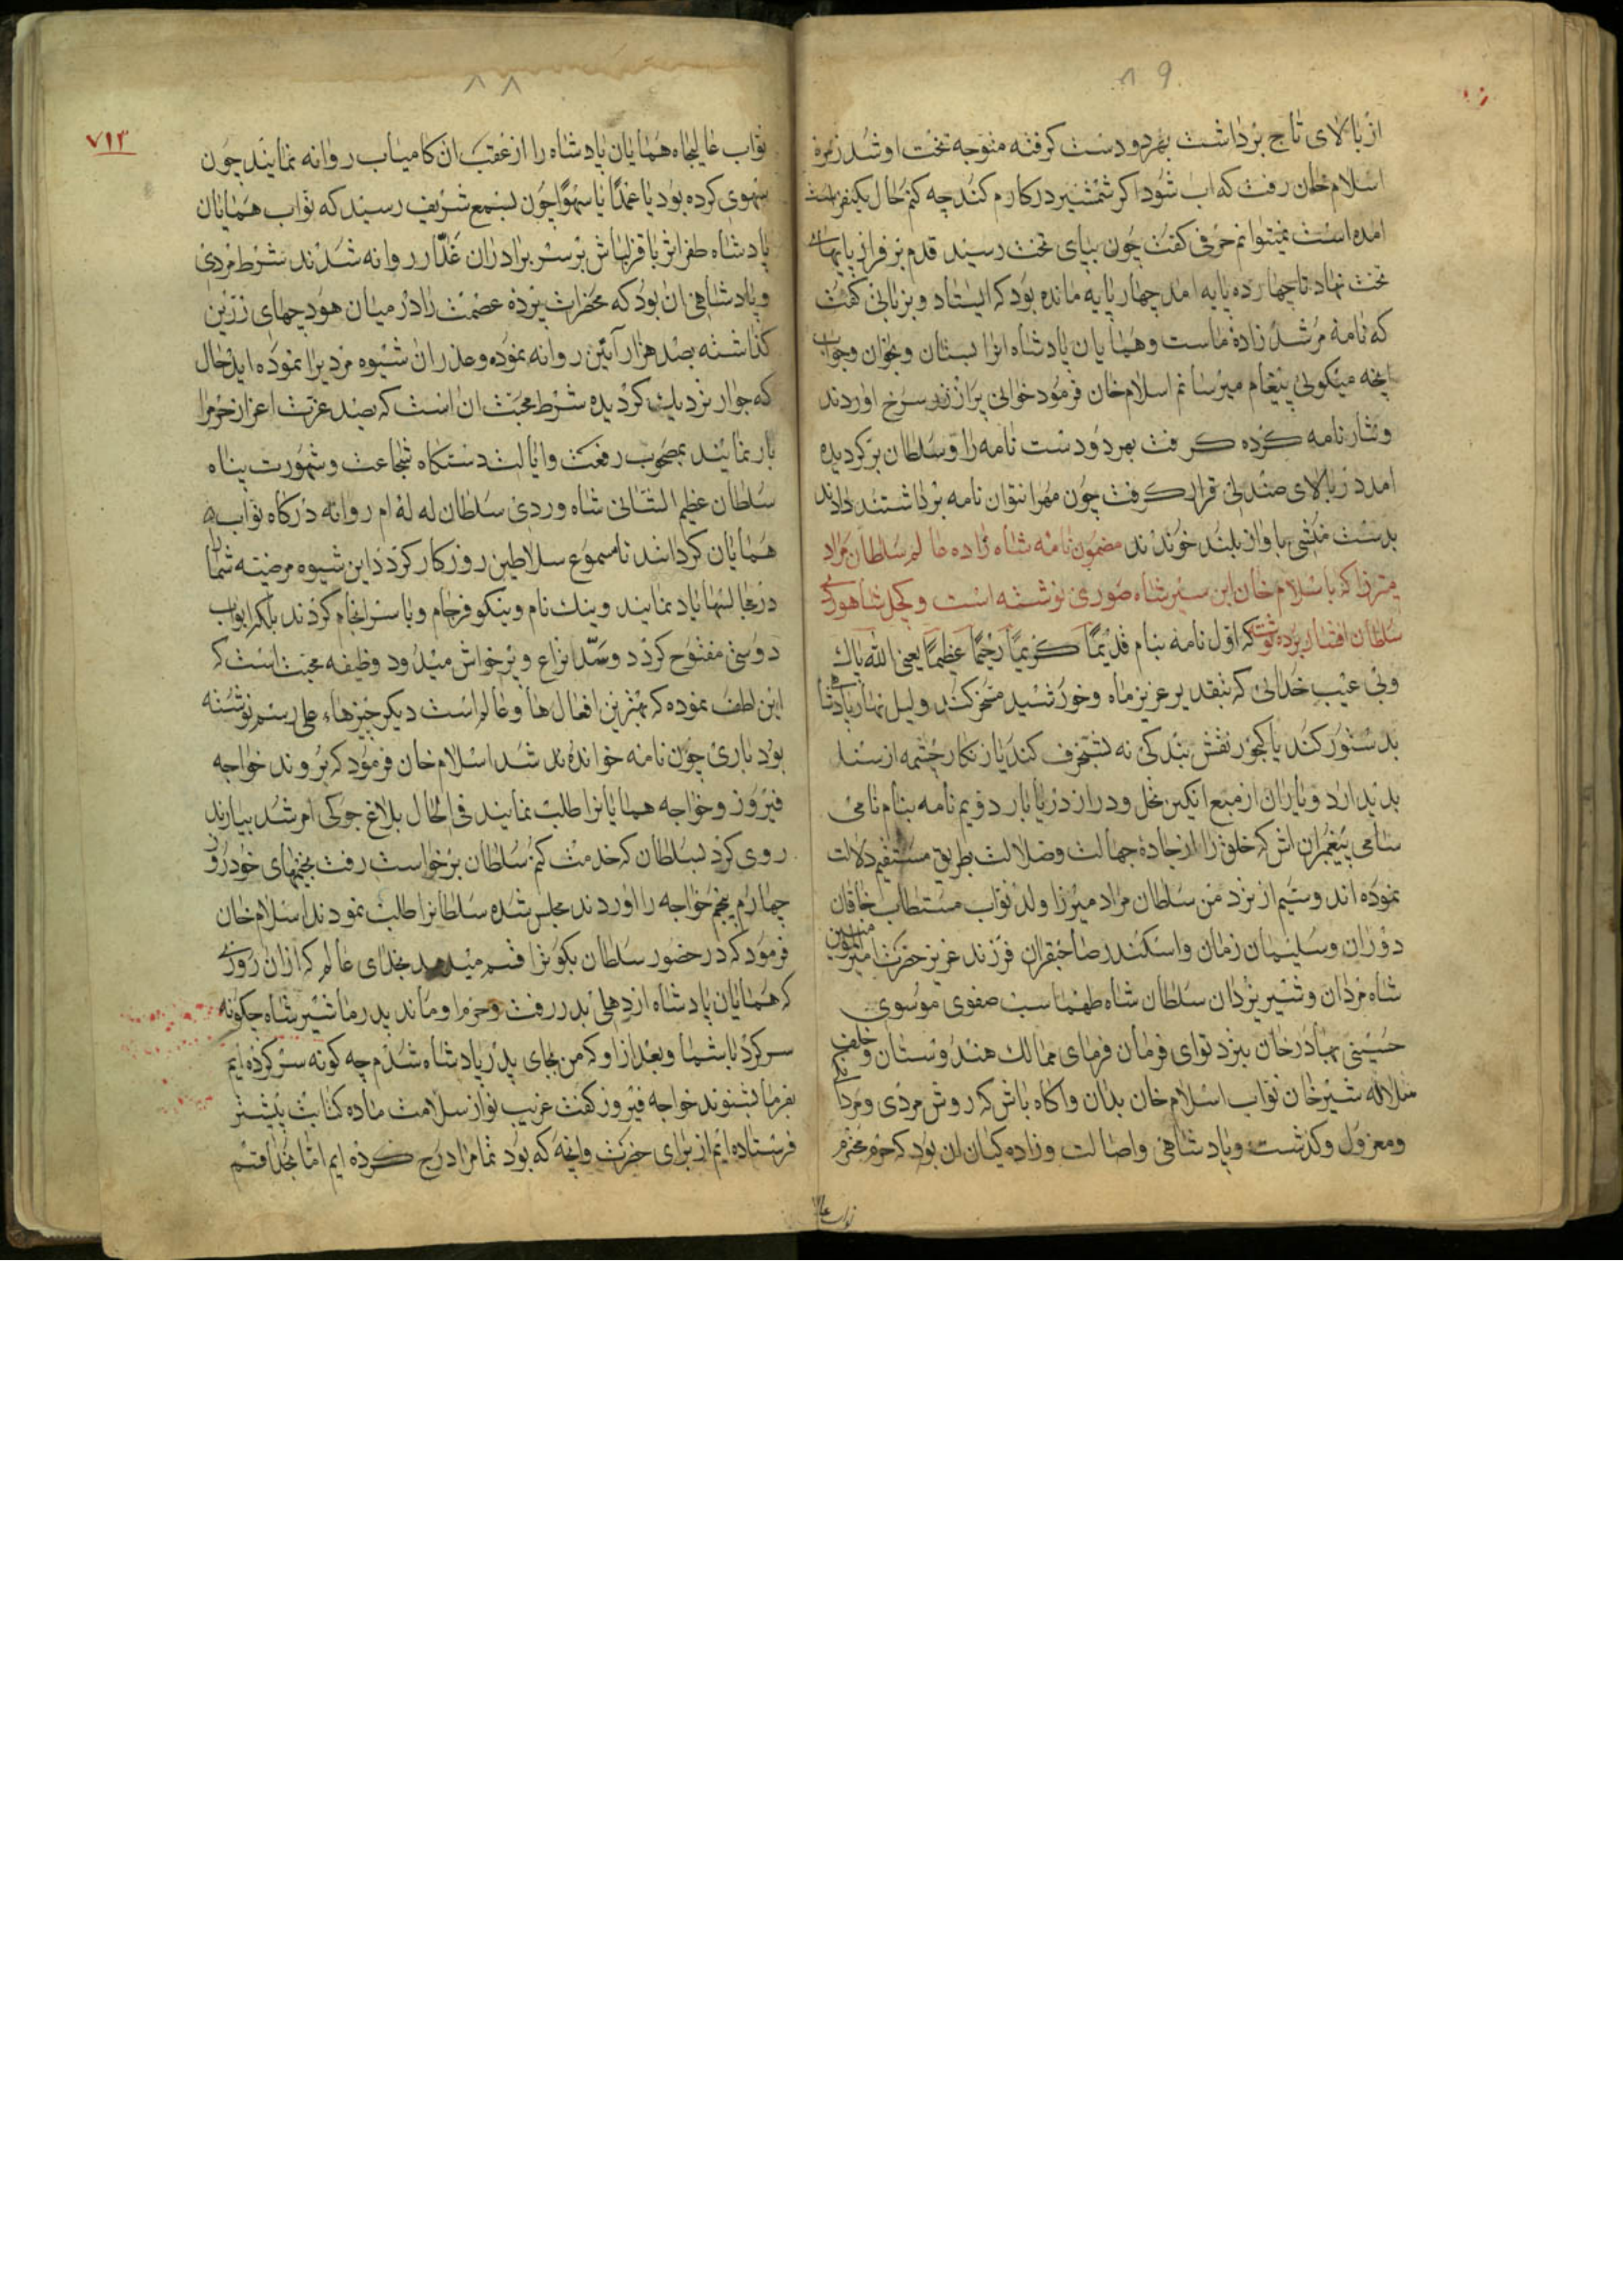 ۸۹
از بالای تاج برداشت بهر دو دست کرفته متوجه تخت او شد زهره
اسلام خان رفت که اب شود اکر شمشیر در کارم کند چه کنم حال یکنفر است
امده است نمیتوانم حرفی کفت چون بپای تخت رسید قدم بر فراز پایهاء
تخت نهاد تا چهارده پایه امد چهار پایه مانده بود که ایستاد و بزبانی کفت
که نامه مرشد زاده ماست و همایان پادشاه انرا بستان و بخوان و جواب
انچه میکوئی پیغام میرسانم اسلام خان فرمود خوانی پر از زر سرخ اوردند
و نثار نامه کرده کرفت بهر دو دست نامه را و سلطان برکردیده
امد در بالای صندلی قرار کرفت چون مهر از نوان نامه برداشتند دادند
بدست منشی باواز بلند خوندند مضمون نامه شاه زاده عالم سلطان مراد
میرزا که باسلام خان ابن سیر شاه صوری نوشته است و کچل شاهوردی
سلطان افشار برده نوشته که اول نامه بنام قدیمًا کریمًا رحیمًا عظیمًا یعنی الله پاک
وبی عیب خدائی که بتقدیر عزیز ماه و خورشید مسخر کند و لیل نهار پادشا
بدستور کند یا کجور نقش بند کی نه بتبخرف کند یا زنکار چشمه از سنک
بدید ارد و باران از میع انکبین نحل و در از دریا بار دویم نامه بنام نامی
سامی پیغمبران اش که خلق را از جادهٔ جهالت وضلالت بطریق مستقیم دلالت
نموده اند و سیم از نزد من سلطان مراد میرزا ولد نواب مستطاب خاقان
دوران و سلیمان زمان و اسکندر صاحبقران فرزند عزیز حضرت امیر المومنین
شاه مردان و شیر یزدان سلطان شاه طهماسب صفوی موسوی
حسینی بهادر خان بنزد توای فرمان فرمای ممالک هندوستان و خلف
سلاله شیر خان نواب اسلام خان بدان واکاه باش که روش مردی و مردانکی
ومعزول و کذشت و پادشاهی واصالت و زاده کیان ان بود که حرم محترم
نواب عا
۸۸
۷۱۳
نواب عالیجاه همایان پادشاه را از عقب ان کامیاب روانه نمایند چون
سهوی کرده بود یا عمدًا یا سهوًا چون بسمع شریف رسید که نواب همایان
پادشاه ظفراثر با قزلباش بر سر برادران غدّار روانه شدند شرط مردی
و پادشاهی ان بود که مخدرات پرده عصمت را در میان هودجهای زرین
کذاشته بصد هزار آئین روانه نموده و عذر ان شیوه مردیرا نموده اید حال
که جوار نزدیک کردیده شرط محبت ان است که بصد عزت اعزاز حرم را
بار نمایند بمصحوب رفعت وایالت دستکاه شجاعت و شهورت پناه
سلطان عظیم الشانی شاه وردی سلطان له له ام روانه درکاه نواب
همایان کردانند تا مسموع سلاطین روزکار کردد این شیوه مرضیه شما
در مجالسها یاد نمایند و نیک نام و نیکو فرجام و با سرانجام کردند بلکه ابواب
دوستی مفتوح کردد و سدّ نزاع و پرخواش میدود وظیفه محبت است که
این لطف نموده که بهترین افعال ها و عالم است دیکر چیزهاء علی رسم نوشته
بود باری چون نامه خوانده شد اسلام خان فرمود که بروند خواجه
فیروز و خواجه همایانرا طلب نمایند فی الحال بلاغ جوکی امر شد بیارند
روی کرد بسلطان که خدمت کنم سلطان برخواست رفت بخیمهای خود روز
چهارم پنجم خواجه را اوردند مجلس شده سلطانرا طلب نمودند اسلام خان
فرمود که در حضور سلطان بکو ترا قسم میدهد بخدای عالم که از ان روزی
که همایان پادشاه از دهلی بدر رفت و حرم او ماند پدر ما شیر شاه چکونه
سر کرد با شما و بعد از او که من بجای پدر پادشاه شدم چه کونه سر کرده ایم
بفرما بشنوند خواجه فیروز کفت غریب نواز سلامت ماده کتابت پیشتر
فرستاده ایم از برای حضرت وانچه که بود تمامرا درج کرده ایم اما بخدا قسم